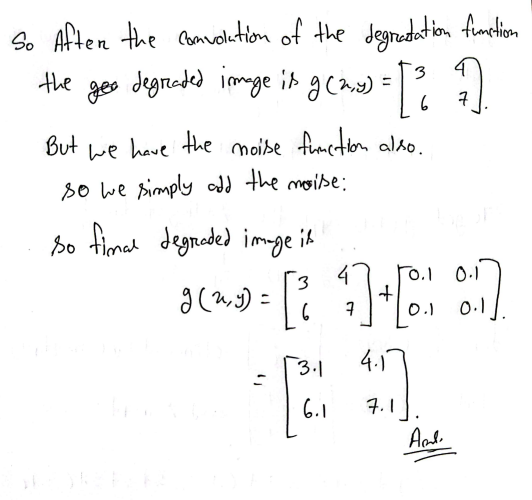 So After the convolution of the degradation function
the degraded image is g(x,y) = [3 4
6 7].
But we have the noise function also.
so we simply add the noise:
so final degraded image is
g(x,y) = [3 4
6 7] + [0.1 0.1
0.1 0.1].
= [3.1 4.1
6.1 7.1].
Ans.